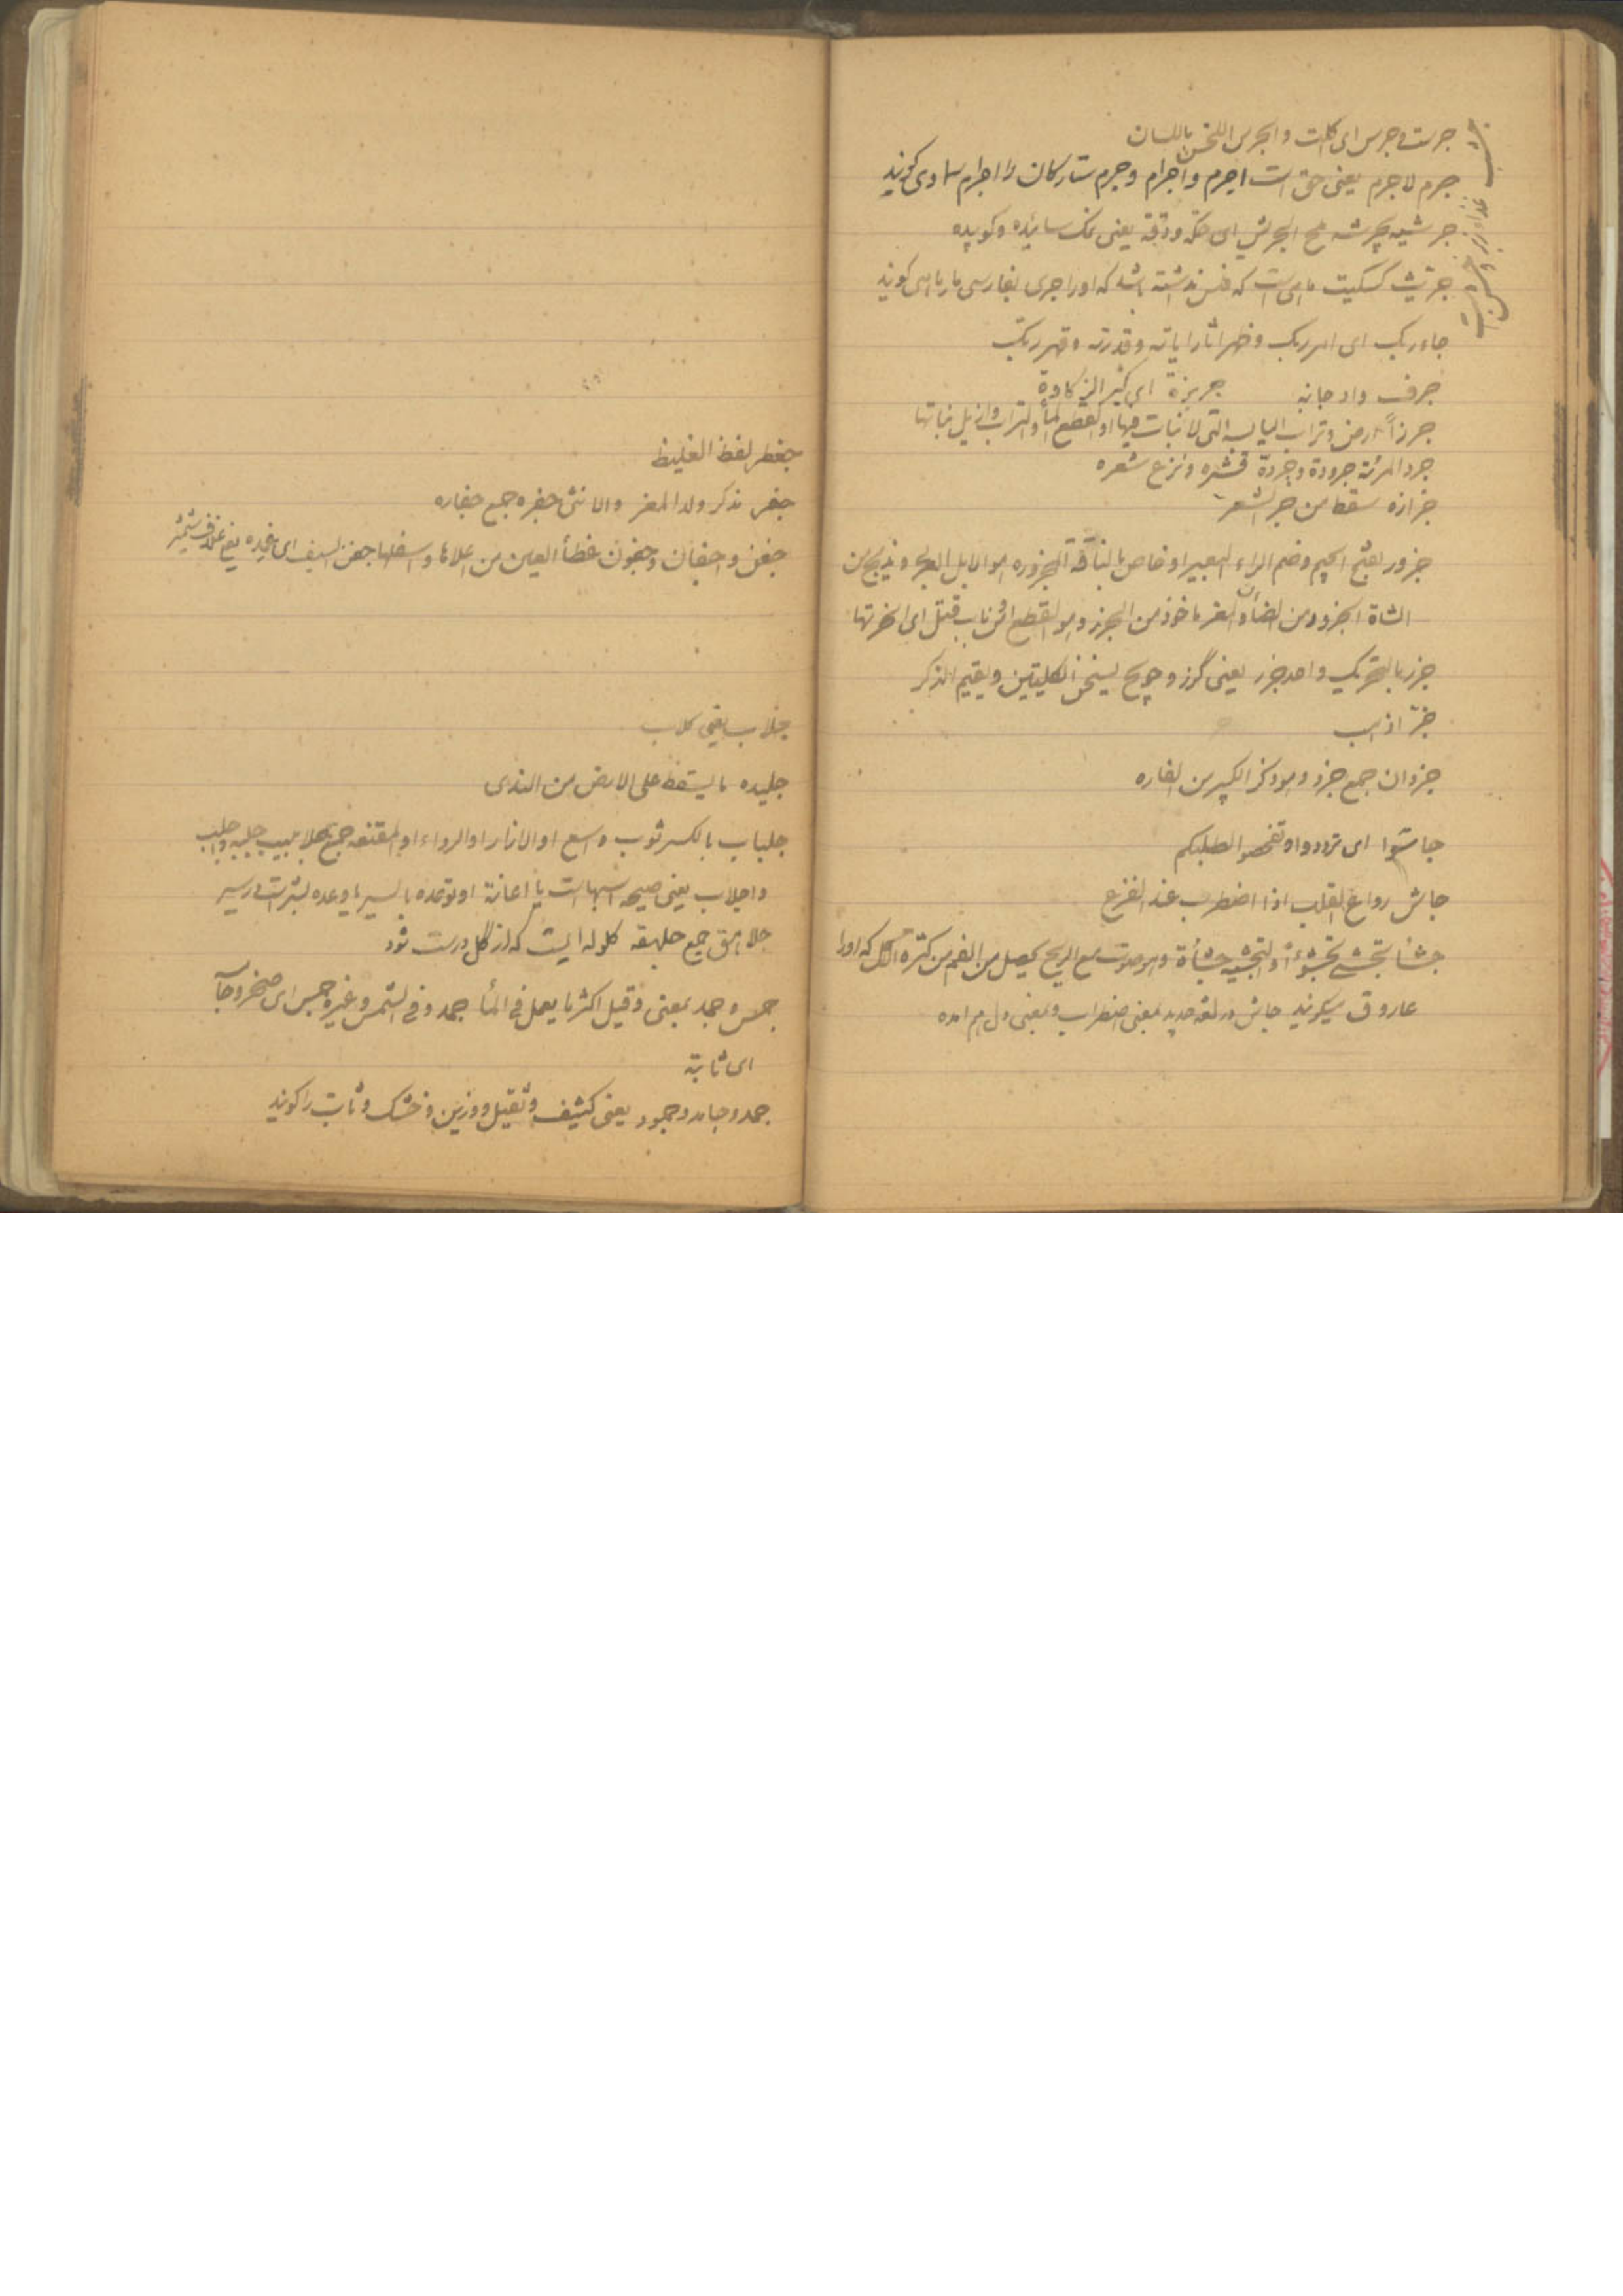 جرت و جرس ای کلت و الجرس اللحن باللسان
جرم لاجرم یعنی حق است اجرم و اجرام و جرم ستارکان را اجرام سماوی کویند
جرشیه بجرشه ملح الجریش ای حکه ودقه یعنی نمک سائیده وکوبیده
جریث کسکیت ماهی است که فلس نداشته باشد که اورا جری بفارسی مارماهی کویند
جاء ربک ای امر ربک وظهر اثار ایاته وقدرته وقهر ربک
جرف واد جانبه جربزة ای کثیر الزکاوة
جرزاً ارض وتراب الیابسه التی لانبات فیها او لقطع الماٴ والتراب وازیل نباتها
جرد المرئة جرودة وجردة قشره ونزع شعره
جزازه سقط من جز الشعر
جزور بفتح الجیم وضم الزاء البعیر او خاص بالناقة الجزوره هو الابل وما یذبح من
الشاة الجزور من الضأن والمعز ماخوذ من الجزر وهو القطع من باب قتل ای نحرتها
جزر بالتحریک واحد جزر یعنی گزر و هویج یسخن الکلیتین ویقیم الذکر
جزّ اذهب
جرذان جمع جرذ وهو ذکر الکبیر من الفاره
جاسوا ای ترددوا وتفحصوا لطلبکم
جاش رواع القلب اذا اضطرب عند الفزع
جشأ تجشی تجشوءاً والتجشیه جشأة وهو صوت مع الریح یحصل من الفم من کثرة الاکل که اورا
عاروق میکویند جاش در لغة جدید بمعنی اضطراب وبمعنی دل هم امده
جعظر لفظ الغلیظ
جفر مذکر ولد المعز والانثی جفره جمع جفاره
جفن واجفان وجفون غطأ العین من اعلاها واسفلها جفن السیف ای غمده یعنی غلاف شمشیر
جلاب یعنی کلاب
جلیده ما یسقط علی الارض من الندی
جلباب بالکسر ثوب واسع او الازار او الرداء او المقنعه جمع جلابیب جلبه واجلب
واجلاب یعنی صیحه اسبها است یا اعانة او توعده بالسیر یا وعده بشر است در سیر
جلاهق جمع جلهقه کلوله ایست که از گل درست شود
جمس وجمد بمعنی وقیل اکثر ما یعمل فی المأ جمد وفی السمن وغیره جمس ای صخر وجاٴ
ای ثابتة
جمد وجامد وجمود یعنی کثیف وثقیل ووزین وخشک وثابت را کویند